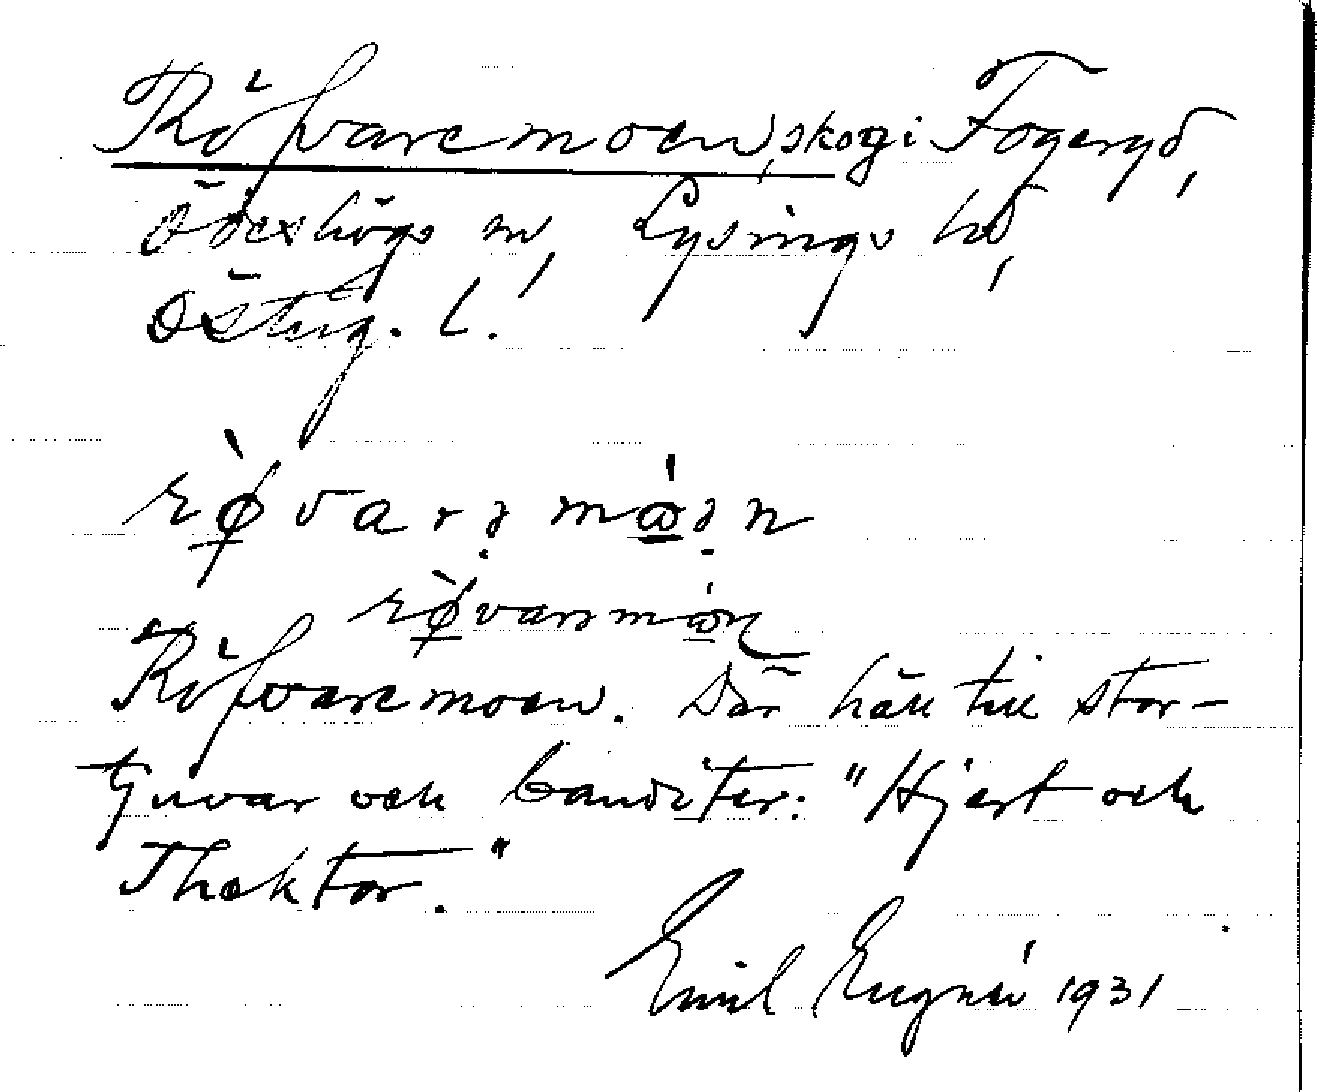 Röfvaremoen, skog i Fogeryd,
Ödeshögs sn, Lysings hd,
Österg. L.
rø̀varə mó̱ən
rø̀varə mó̱ən
Röfvaremoen. Där höll till stor-
tjuvar och banditer: "Hjert och
Thektor."
Emil Eugnér 1931